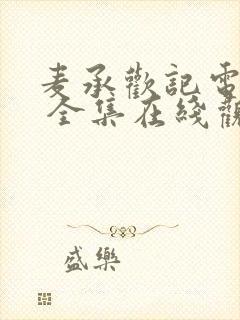 麦承歡記電
全集在綫觀
盛樂